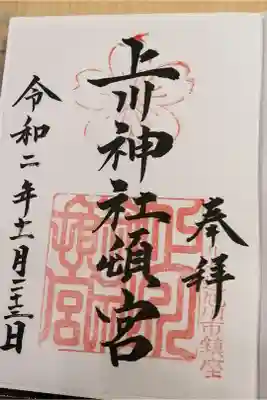 奉拝
旭川市鎮座
上川神社頓宮
令和二年十一月二十三日